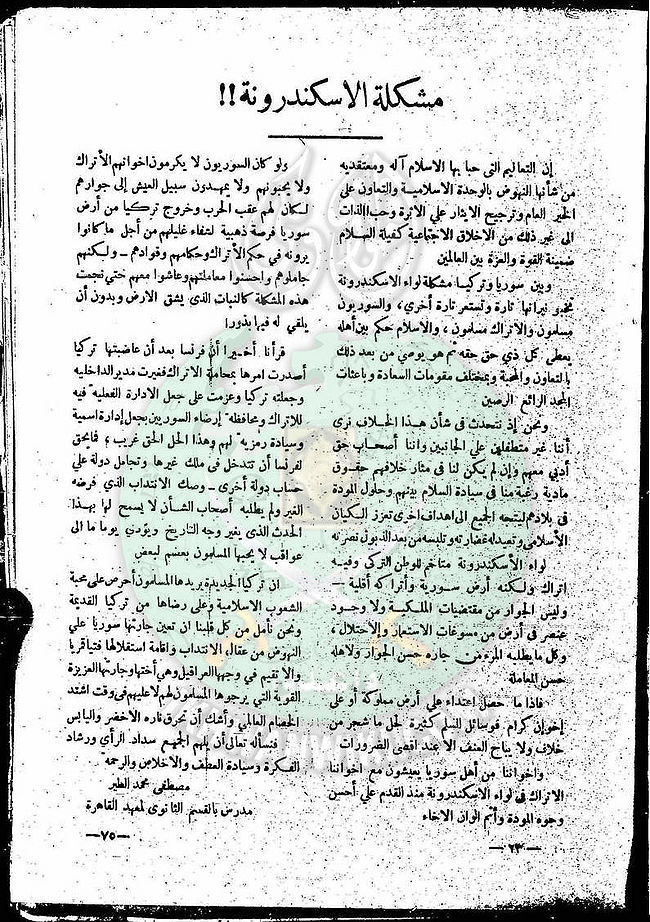 مشكلة الاسكندرونة !!
إن التعاليم التى حبا بها الاسلام آله ومعتقديه
من شأنها النهوض بالوحدة الاسلامية والتعاون على
الخير العام وترجيح الايثار علي الاثرة وحب الذات
الى غير ذلك من الاخلاق الاجتماعية كفيلة السلام
ضمينة القوة والعزة بين العالمين
وبين سوريا وتركيا مشكلة لواء الاسكندرونة
تخبو نيرانها تارة وتستعر تارة أخري، والسوريون
مسلمون والاتراك مسلمون، والاسلام حكم بين أهله
يعطى كل ذي حق حقه ثم هو يوصي من بعد ذلك
بالتعاون والمحبة وبمختلف مقومات السعادة وباعثات
المجد الرائع الرصين
ونحن إذ نتحدث فى شأن هذا الخلاف نرى
أننا غير متطفلين علي الجانبين واننا أصحاب حق
أدبي معهم وإن لم يكن لنا فى مثار خلافهم حقوق
مادية رغبة منا في سيادة السلام بينهم وحلول المودة
فى بلادهم ليتجه الجميع الى اهداف اخرى تعزز الكيان
الأسلامى وتعيد له غضارته وتلبسه من بعد الذبول نضرته
لواء الأسكندرونة متاخم للوطن التركى وفيه
اتراك ولكنه أرض سورية وأتراكه أقلية —
وليس الجوار من مقتضيات الملكية ولا وجود
عنصر فى أرض من مسوغات الاستعمار والاحتلال،
وكل ما يطلبه المرء من جاره حسن الجوار ولاهله
حسن المعاملة
فاذا ما حصل اعتداء على أرض مملوكة أو على
إخوان كرام فوسائل السلم كثيرة لحل ما شجر من
خلاف ولا يباح العنف الا عند اقصى الضرورات
واخواننا من أهل سوريا يعيشون مع اخواننا
الاتراك فى لواء الاسكندرونة منذ القدم علي أحسن
وجوه المودة وأتم الوان الاخاء
— ٧٣ —
ولو كان السوريون لا يكرمون اخوانهم الأتراك
ولا يحبونهم ولا يمهدون سبيل العيش إلى جوارهم
لكان لهم عقب الحرب وخروج تركيا من أرض
سوريا فرصة ذهبية لشفاء غليلهم من أجل ما كانوا
يرونه في حكم الأتراك وحكامهم وقوادهم — ولكنهم
جاملوهم واحسنوا معاملتهم وعاشوا معهم حتى نجمت
هذه المشكلة كالنبات الذى يشق الارض وبدون أن
يلقي له فيها بذور!
قرأنا أخيرا أن فرنسا بعد أن غاضبتها تركيا
أصدرت امرها بمجاملة الاتراك فغيرت مدير الداخليه
وجعلته تركيا وعزمت على جعل الادارة الفعلية فيه
للاتراك ومحافظة إرضاء السوريين بجعل إدارة اسمية
وسيادة رمزية لهم وهذا الحل الحق غريب، فأيحق
لفرنسا أن تتدخل فى ملك غيرها وتجامل دولة علي
حساب دولة أخرى — وصك الانتداب الذي فرضه
الغير ولم يطلبه أصحاب الشأن لا يسمح لها بهذا
الحدث الذى يغير وجه التاريخ ويؤدي يوما ما الى
عواقب لا يحبها المسلمون بعضهم لبعض
ان تركيا الجديدة يريدها المسلمون أحرص على محبة
الشعوب الاسلامية وعلى رضاها من تركيا القديمة
ونحن نأمل من كل قلبنا ان تعين جارتها سوريا علي
النهوض من عقال الانتداب واقامة استقلالها فتيا قريا
والا تقيم في وجهها العراقيل وهي أختها وجارتها العزيزة
القوية التي يرجوها المسلمون لهم لا عليهم فى وقت اشتد
الخصام العالمي وأشك أن تحرق ناره الأخضر واليابس
فنسأله تعالى أن يلهم الجميع سداد الرأي ورشاد
الفكرة وسيادة العطف والاخلاص والرحمة
مصطفى محمد الطير
مدرس بالقسم الثانوى لمعهد القاهرة
— ٧٥ —